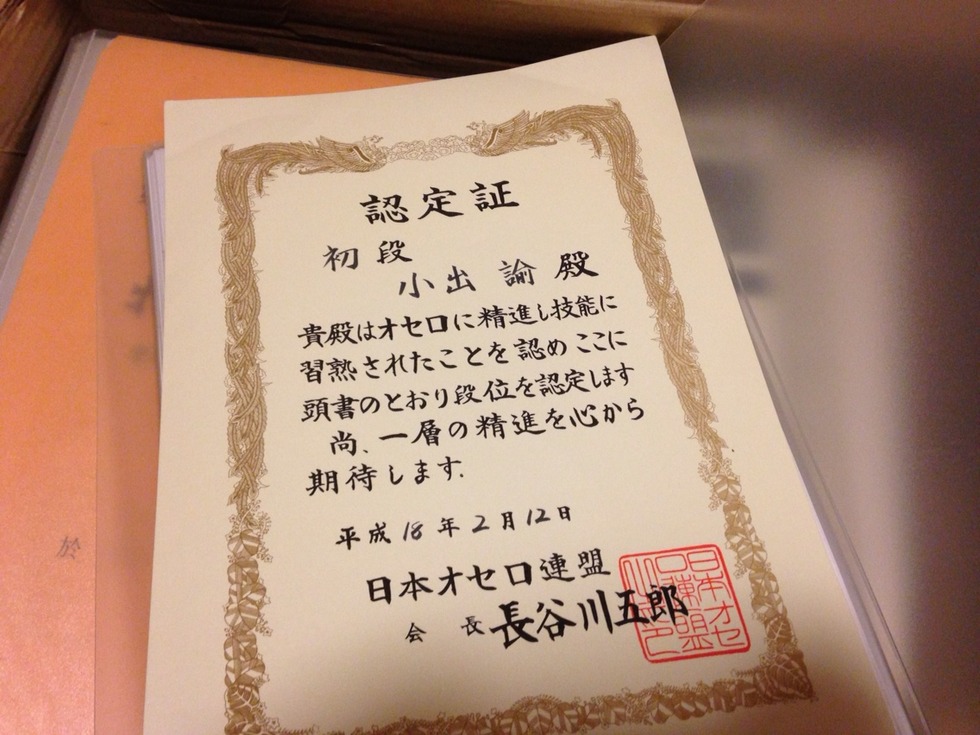 認定証
初段
小出 諭 殿
貴殿はオセロに精進し技能に
習熟されたことを認めここに
頭書のとおり段位を認定します
尚、一層の精進を心から
期待します.
平成18年2月12日
日本オセロ連盟
会 長 長谷川五郎
於